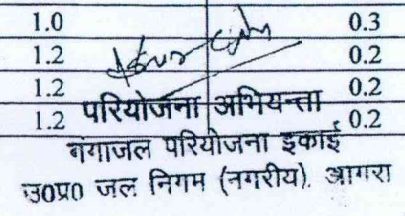 1.0 0.3
1.2 0.2
1.2 0.2
1.2 0.2
परियोजना अभियन्ता
गंगाजल परियोजना इकाई
उ0प्र0 जल निगम (नगरीय). आगरा